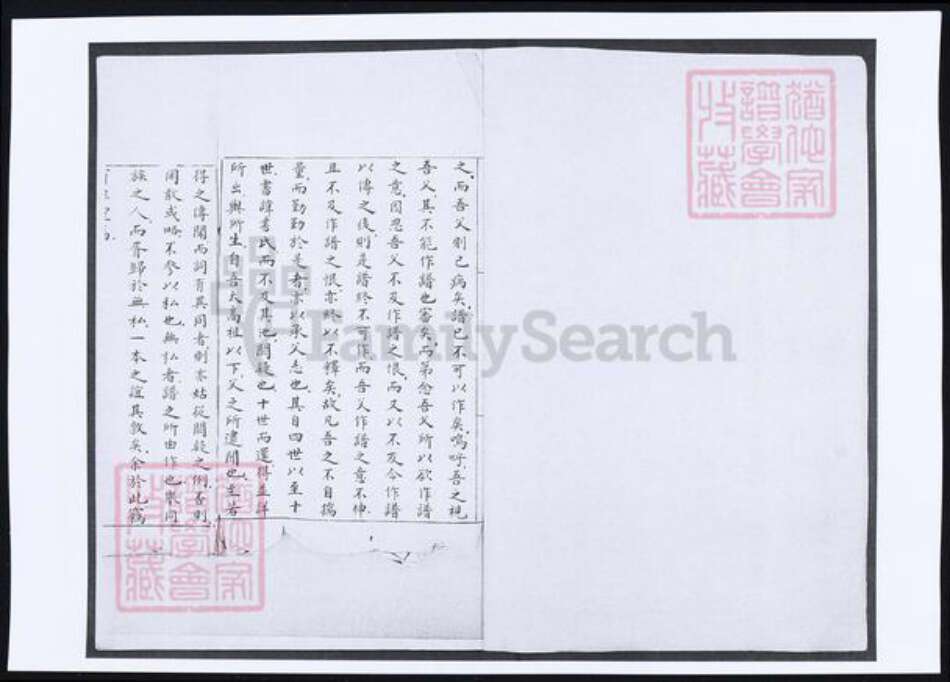 之而吾父則已病矣譜已不可以作矣嗚呼吾之視
吾父其不能作譜也審矣而第念吾父所以欲作譜
之意因忍吾父不及作譜之恨而又以不及今作譜
以傳之後則是譜終不可作而吾父作譜之意不伸
且不及作譜之恨亦終以不釋矣故凡吾之不自揣
量而勤勤於是者亦以承父志也其自四世以至十
世書諱書氏而不及其他闕疑也十世而還得並詳
所出與所生自吾大高祖以下父之所逮聞也至若
得之傳聞而詞有異同者則亦姑從闕疑之例否則
閒散或略不參以私也無私者譜之所由作也聚同
族之人而胥歸於無私一本之誼其敦矣余於此竊
猶他家
譜學會
收藏
FamilySearch
猶他家
譜學會
收藏